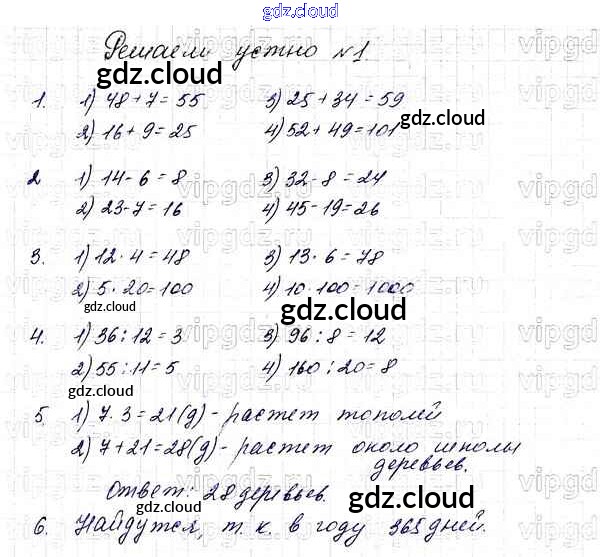 gdz.cloud
Решаем устно №1
gdz.cloud
1. 1) 48+7=55 3) 25+34=59
2) 16+9=25 4) 52+49=101
gdz.cloud
2 1) 14-6=8 3) 32-8=24
2) 23-7=16 4) 45-19=26
gdz.cloud
3. 1) 12·4=48 3) 13·6=78
2) 5·20=100 4) 10·100=1000
gdz.cloud gdz.cloud
4. 1) 36:12=3 3) 96:8=12
2) 55:11=5 4) 160:20=8
gdz.cloud gdz.cloud
5. 1) 7·3=21(д) - растет тополей
2) 7+21=28(д) - растет около школы
деревьев.
gdz.cloud
Ответ: 28 деревьев.
gdz.cloud
6. Найдутся, т.к. в году 365 дней.
gdz.cloud